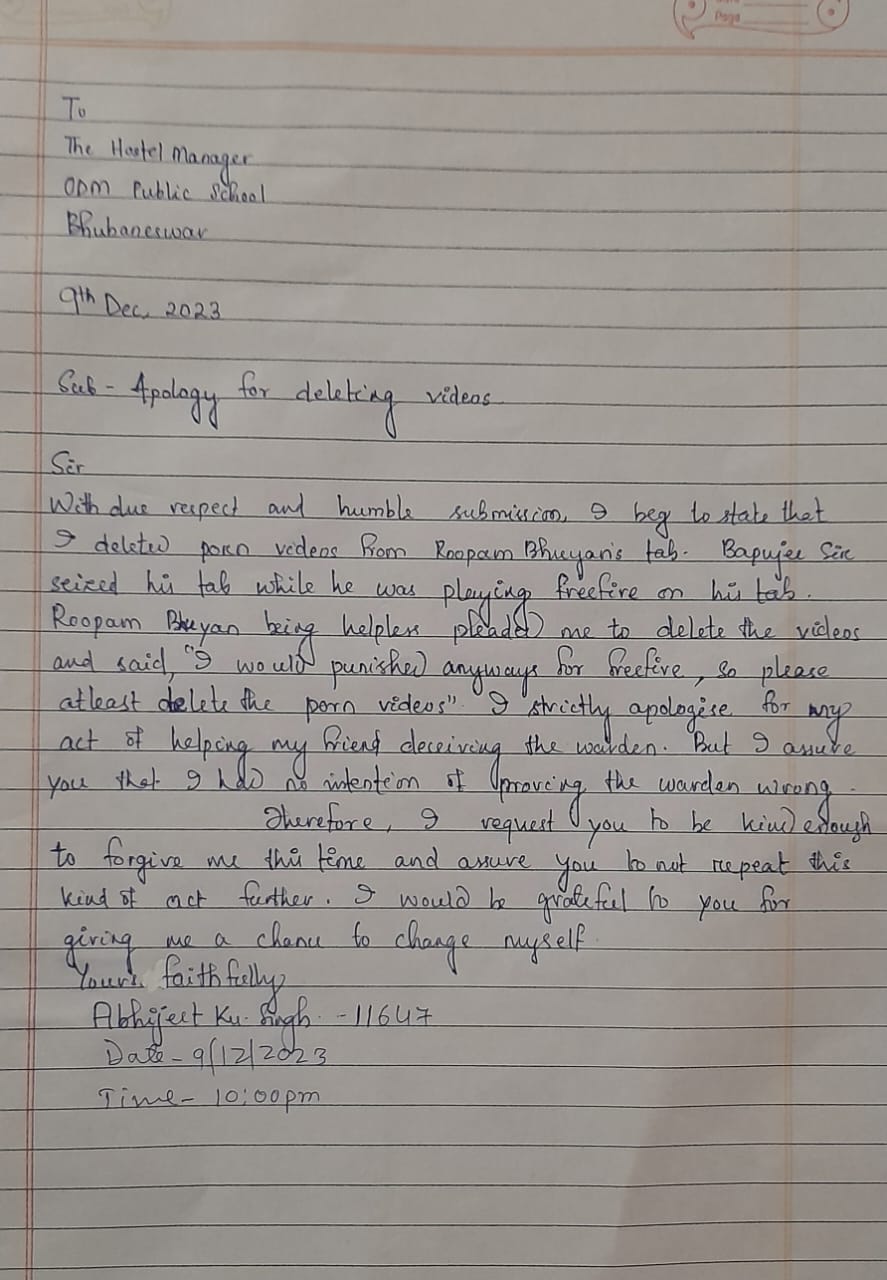 Page
To
The Hostel Manager
ODM Public School
Bhubaneswar
9th Dec, 2023
Sub - Apology for deleting videos
Sir
With due respect and humble submission, I beg to state that
I deleted porn videos from Roopam Bhuyan's tab. Bapujee Sir
seized his tab while he was playing freefire on his tab.
Roopam Bhuyan being helpless pleaded me to delete the videos
and said, "I would punished anyways for freefire, so please
atleast delete the porn videos". I strictly apologise for my
act of helping my friend deceiving the warden. But I assure
you that I had no intention of proving the warden wrong.
Therefore, I request you to be kind enough
to forgive me this time and assure you to not repeat this
kind of act further. I would be grateful to you for
giving me a chance to change myself.
Yours faithfully
Abhijeet Ku. Singh. - 11647
Date - 9/12/2023
Time - 10:00pm